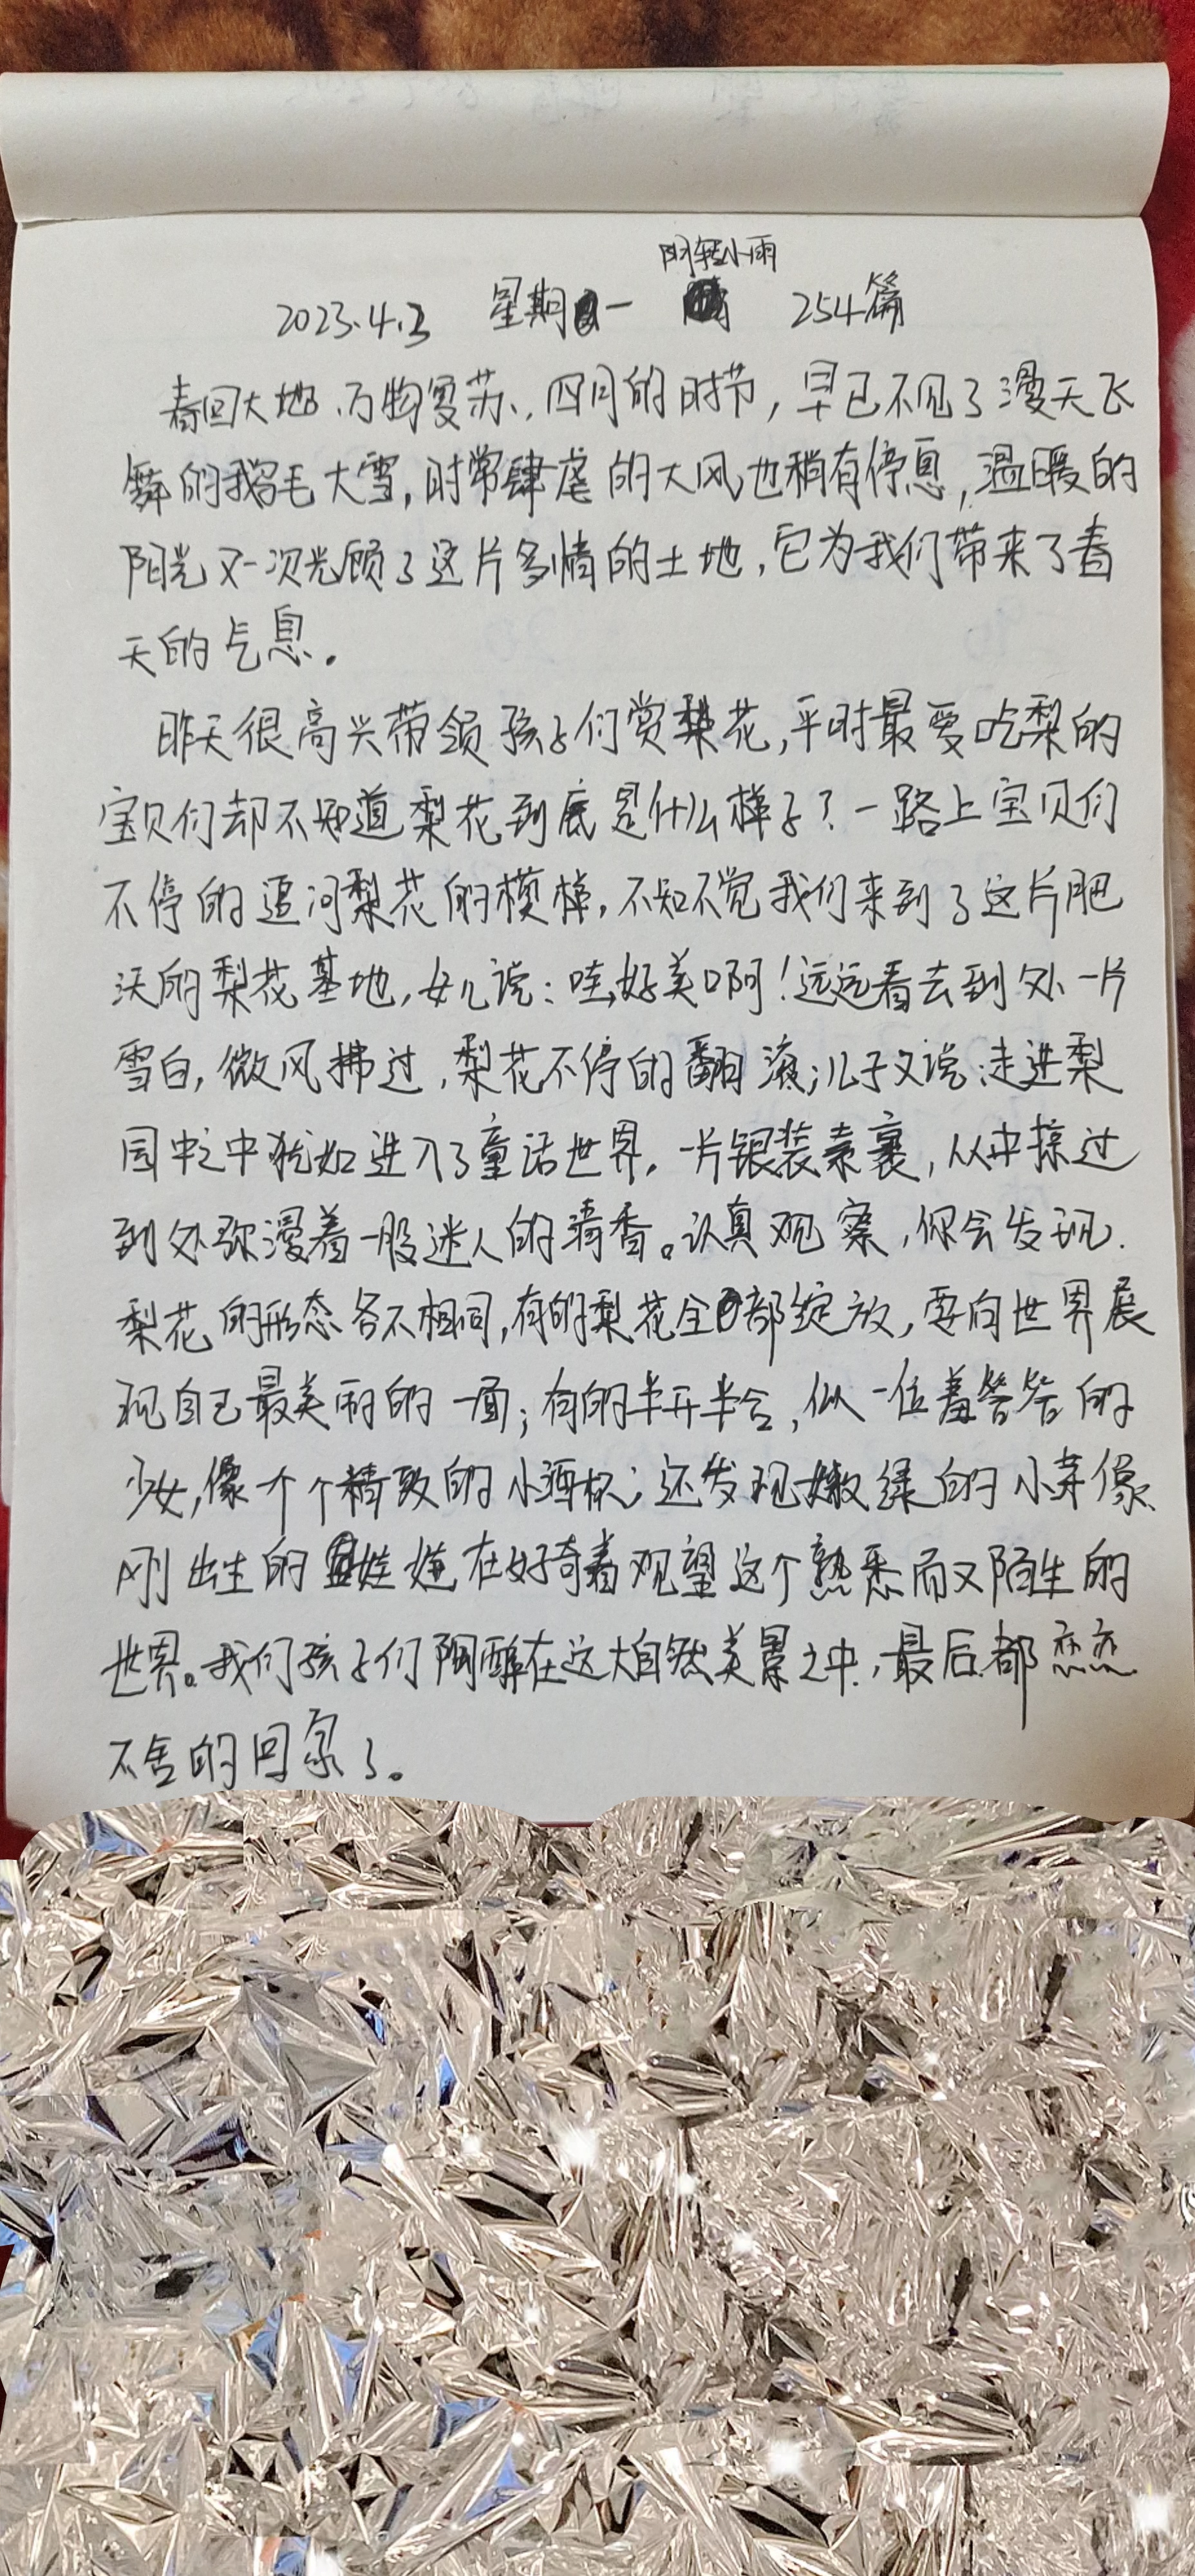 阴转小雨
2023.4.3 星期一 254篇
春回大地、万物复苏、四月的时节，早已不见了漫天飞
舞的鹅毛大雪，时常肆虐的大风也稍有停息，温暖的
阳光又一次光顾了这片多情的土地，它为我们带来了春
天的气息。
昨天很高兴带领孩子们赏梨花，平时最爱吃梨的
宝贝们却不知道梨花到底是什么样子？一路上宝贝们
不停的追问梨花的模样，不知不觉我们来到了这片肥
沃的梨花基地，女儿说：哇，好美啊！远远看去到处一片
雪白，微风拂过，梨花不停的翻滚；儿子又说：走进梨
园中之中犹如进入了童话世界，一片银装素裹，从中穿过
到处弥漫着一股迷人的清香。认真观察，你会发现，
梨花的形态各不相同，有的梨花全部绽放，要向世界展
现自己最美丽的一面；有的半开半合，似一位羞答答的
少女，像个个精致的小酒杯；还发现嫩绿的小芽像
刚出生的娃娃在好奇着观望这个熟悉而又陌生的
世界。我们孩子们陶醉在这大自然美景之中，最后都恋恋
不舍的回家了。